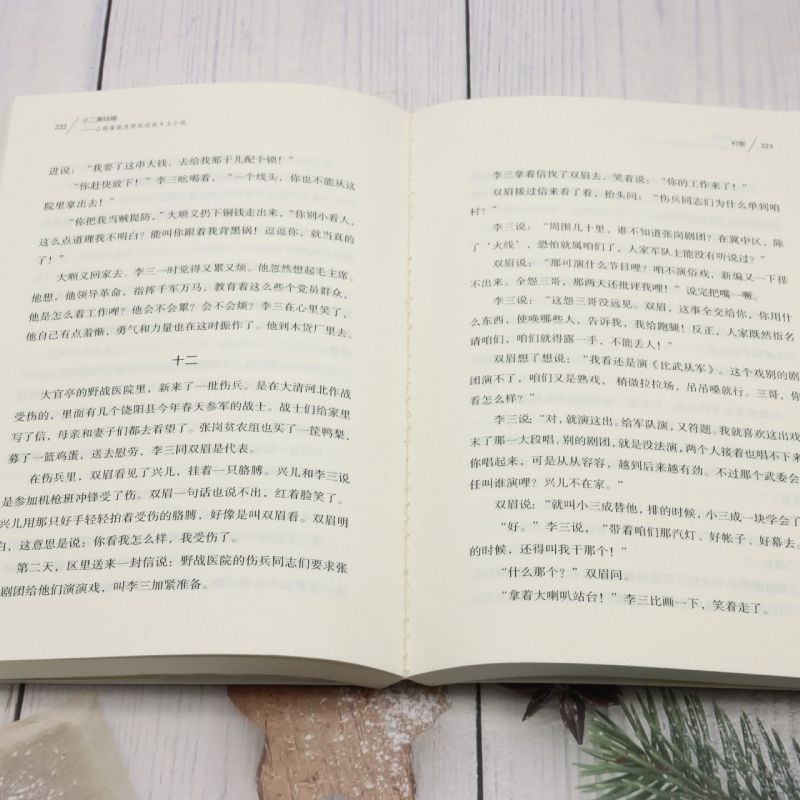 222
小二黑结婚
进说：“我要了这串大钱，去给我那干儿配个锁！”
“你赶快放下！”李三吆喝着，“一个线头，你也不能从这
院里拿出去！”
“你把我当贼提防，”大顺义扔下铜钱走出来，“你别小看人，
这么点道理我不明白？能叫你跟着我背黑锅！逗逗你，就当真的
了！”
大顺义回家去。李三一时觉得又累又烦。他忽然想起毛主席。
他想，他领导革命，指挥千军万马，教育着这么些个党员群众，
他是怎么着工作哩？他会不会累？会不会烦？李三在心里笑了，
他自己有点羞惭，勇气和力量也在这时振作了。他到木货厂里去。
十二
大官亭的野战医院里，新来了一批伤兵。是在大清河北作战
受伤的，里面有几个饶阳县今年春天参军的战士。战士们给家里
写了信，母亲和妻子们都去看望了。张岗贫农组也买了一筐鸭梨，
募了一篮鸡蛋，送去慰劳，李三同双眉是代表。
在伤兵里，双眉看见了兴儿，挂着一只胳膊。兴儿和李三说
是参加机枪班冲锋受了伤。双眉一句话也说不出，红着脸笑了。
兴儿用那只好手轻轻拍着受伤的胳膊，好像是叫双眉看。双眉明
白，这意思是说：你看我怎么样，我受伤了。
第二天，区里送来一封信说：野战医院的伤兵同志们要求张
剧团给他们演演戏，叫李三加紧准备。
村歌
223
李三拿着信找了双眉去，笑着说：“你的工作来了！”
双眉接过信来看了看，抬头问：“伤兵同志们为什么单到咱
村？”
李三说：“周围几十里，谁不知道张岗剧团？在冀中区，除
了‘火线’，恐怕就属咱们了，人家军队上能没有听说过？”
双眉说：“那可演什么节目哩？咱不演俗戏，新编又一下排
不出来。全怨三哥，那两天还批评我哩！”说完把嘴一噘。
李三说：“这怨三哥没远见。双眉，这事全交给你，你用什
么东西，使唤那些人，告诉我，我给跑腿！反正，人家既然指名
请咱们，咱们就得露一手，不能丢人！”
双眉想了想说：“我看还是演《比武从军》。这个戏别的剧
团演不了，咱们又是熟戏，稍微拉拉场，吊吊嗓就行。三哥，你
看怎么样？”
李三说：“对，就演这出。给军队演，又符题。我就喜欢这出戏
末了那一大段唱，别的剧团，就是没法演，两个人接着也唱不下来
你唱起来，可是从从容容，越到后来越有劲。不过那个武委会
任叫谁演哩？兴儿不在家。”
双眉说：“就叫小三成替他，排的时候，小三成一块学会了
“好。”李三说，“带着咱们那汽灯、好帐子、好幕去。
的时候，还得叫我干那个！”
“什么那个？”双眉问。
“拿着大喇叭站台！”李三比画一下，笑着走了。